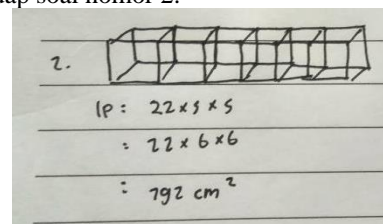 ap soal nomor 2.
2.
lp : 22 x s x s
: 22 x 6 x 6
: 792 cm²